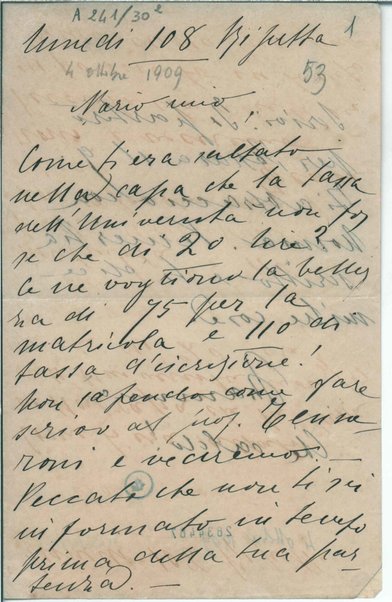 A 241/30²
1
lunedì 108 Ripetta
4 ottobre 1909
53
Mario mio!
Come t'era saltato
nella capa che la tassa
dell'Università non fos
se che di 20 lire?
Ce ne vogliono la bellez
za di 75 per la
matricola e 110 di
tassa d'iscrizione!
Non sapendo come fare
scrivo al
e vedremo. —
Peccato che non ti sii
informato in tempo
prima della tua par
tenza. —